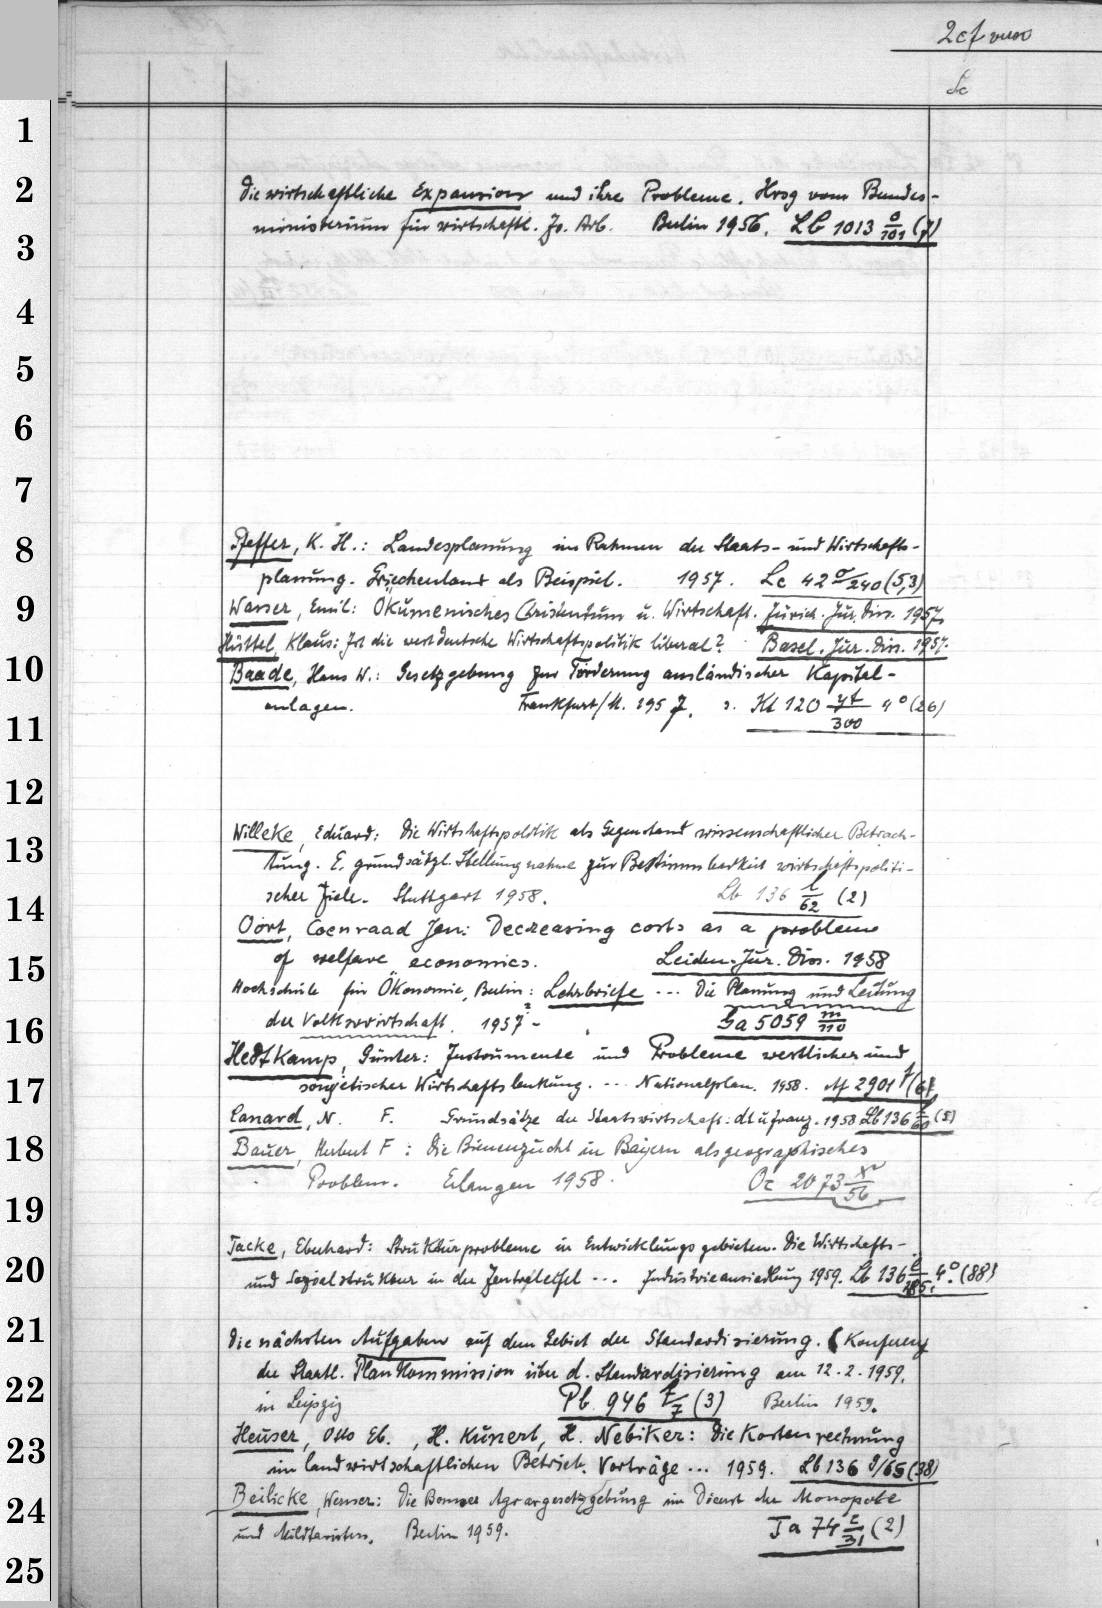 2 cf
Lc
1
2
Die wirtschaftliche Expansion und ihre Probleme. Hrsg vom Bundes-
ministerium für wirtschaftl. Zs. Arb. Berlin 1956. Lb 1013 o/101 (7)
3
4
5
6
7
8
Pfeffer, K. H.: Landesplanung im Rahmen der Staats- und Wirtschafts-
planung. Griechenland als Beispiel. 1957. Lc 42 o/240 (5,3)
9
Wasser, Emil: Ökumenisches Christentum u. Wirtschaft. Zürich. Jur. Diss. 1957.
Hüttel, Klaus: Ist die westdeutsche Wirtschaftspolitik liberal? Basel. Jur. Diss. 1957.
10
Baade, Hans W.: Gesetzgebung zur Förderung ausländischer Kapital-
anlagen. Frankfurt/M. 1957. Kl 120 yt/300 4° (26)
11
12
13
Willeke, Eduard: Die Wirtschaftspolitik als Gegenstand wissenschaftlicher Betrach-
tung. E. grundsätzl. Stellungnahme zur Bestimmbarkeit wirtschaftspoliti-
14
scher Ziele. Stuttgart 1958. Lb 136 l/62 (2)
Oort, Coenraad Jan: Decreasing costs as a problem
15
of welfare economics. Leiden. Jur. Diss. 1958
Hochschule für Ökonomie, Berlin: Lehrbriefe ... Die Planung und Leitung
16
der Volkswirtschaft. 1957 - Ga 5059 m/110
Hedtkamp, Günter: Instrumente und Probleme westlicher und
17
sowjetischer Wirtschaftslenkung. ... Nationalplan. 1958. 2901 (6)
Canard, N. F. Grundsätze der Staatswirtschaft: dt u franz. 1958 Lb 136 /60 (5)
18
Bauer, Herbert F: Die Bienenzucht in Bayern als geographisches
Problem. Erlangen 1958. Oz 2073 x/56
19
Tacke, Eberhard: Strukturprobleme in Entwicklungsgebieten. Die Wirtschafts-
20
und Sozialstruktur in der Zentraleifel ... Industrieansiedlung 1959. Lb 136 l/185 4° (88)
21
Die nächsten Aufgaben auf dem Gebiet der Standardisierung. (Konferenz
der Staatl. Plankommission über d. Standardisierung am 12.2.1959.
22
in Leipzig Pb 946 t/7 (3) Berlin 1959.
23
Heuser, Otto Eb., H. Kunert, H. Nebiker: Die Kostenrechnung
im landwirtschaftlichen Betrieb. Vorträge ... 1959. Lb 136 g/65 (38)
24
Beilicke, Werner: Die Bonner Agrargesetzgebung im Dienst der Monopole
und Militaristen. Berlin 1959. Ja 74 z/31 (2)
25